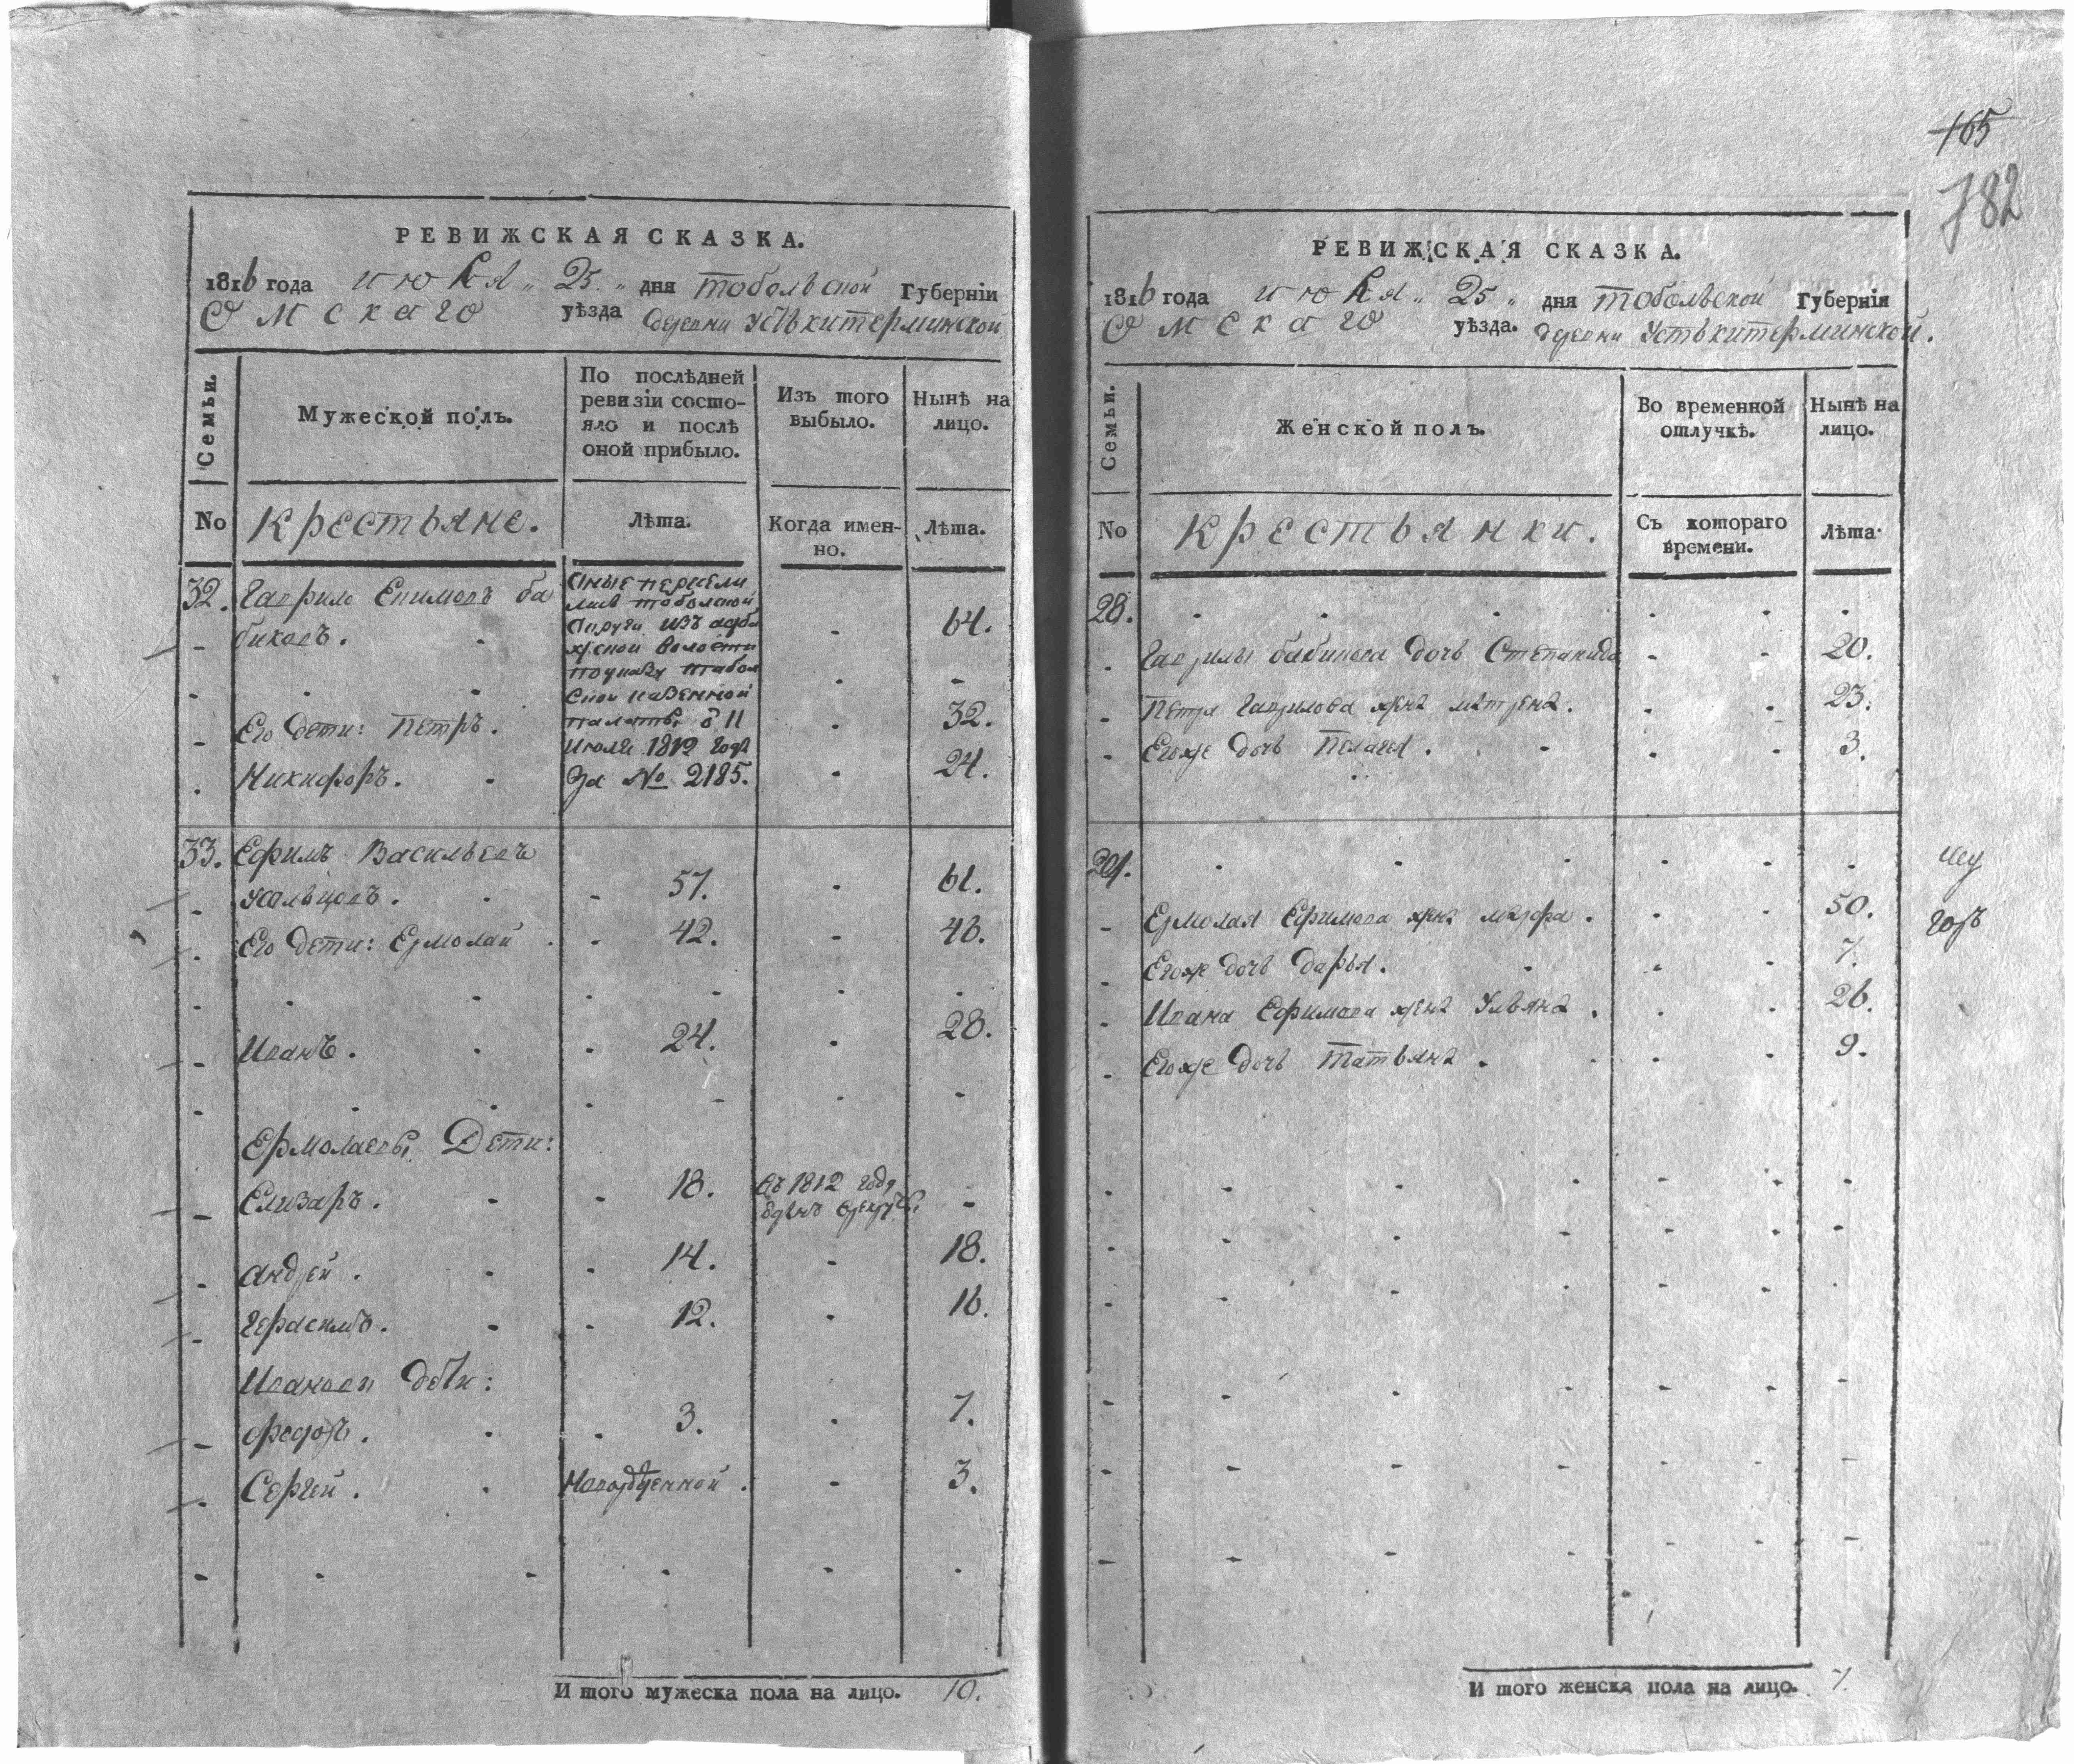 165
782
РЕВИЖСКАЯ СКАЗКА.
1816 года июля „ 25 „ дня тобольской Губерніи
Омскаго уѣзда деревни Устькитерминской
Семьи.
Мужеской полъ.
По послѣдней ревизіи состо-
яло и послѣ оной прибыло.
Изъ того выбыло.
Нынѣ на лицо.
No Крестьяне. Лѣта. Когда имен-
но. Лѣта.
32. Гаврило Епимовъ ба
биковъ. 64.
Его дети: Петръ. 32.
Никифоръ. 24.
Оные пересели
лись тоболской
округи изъ
волости
по указу тоболь
ской казенной
палаты 11
июля 1812 года
За No 2185.
33. Ефимъ Васильевъ
усальцовъ. 57. 61.
Его дети: Ермолай 42. 46.
Иванъ. 24. 28.
Ермолаевы Дети:
Елизаръ. 18. Въ 1812 году
отданъ в рекруты
Андрей. 14. 18.
Герасимъ. 12. 16.
Ивановы дети:
Федоръ. 3. 7.
Сергей. Новорожденной. 3.
И того мужеска пола на лицо. 10.
РЕВИЖСКАЯ СКАЗКА.
1816 года июля „ 25 „ дня тобольской Губерніи
Омскаго уѣзда. деревни Устькитерминской.
Семьи.
Женской полъ.
Во временной отлучкѣ.
Нынѣ на лицо.
No Крестьянки. Съ котораго
времени. Лѣта.
28.
Гаврилы бабикова дочь Степанида 20.
Петра Гаврилова жена матрена. 23.
Его же дочь Пелагея. 3.
29.
Ермолая Ефимова жена марфа. 50.
Его же дочь дарья. 7.
Ивана Ефимова жена Ульяна. 26.
Его же дочь татьяна. 9.
И того женска пола на лицо. 7.